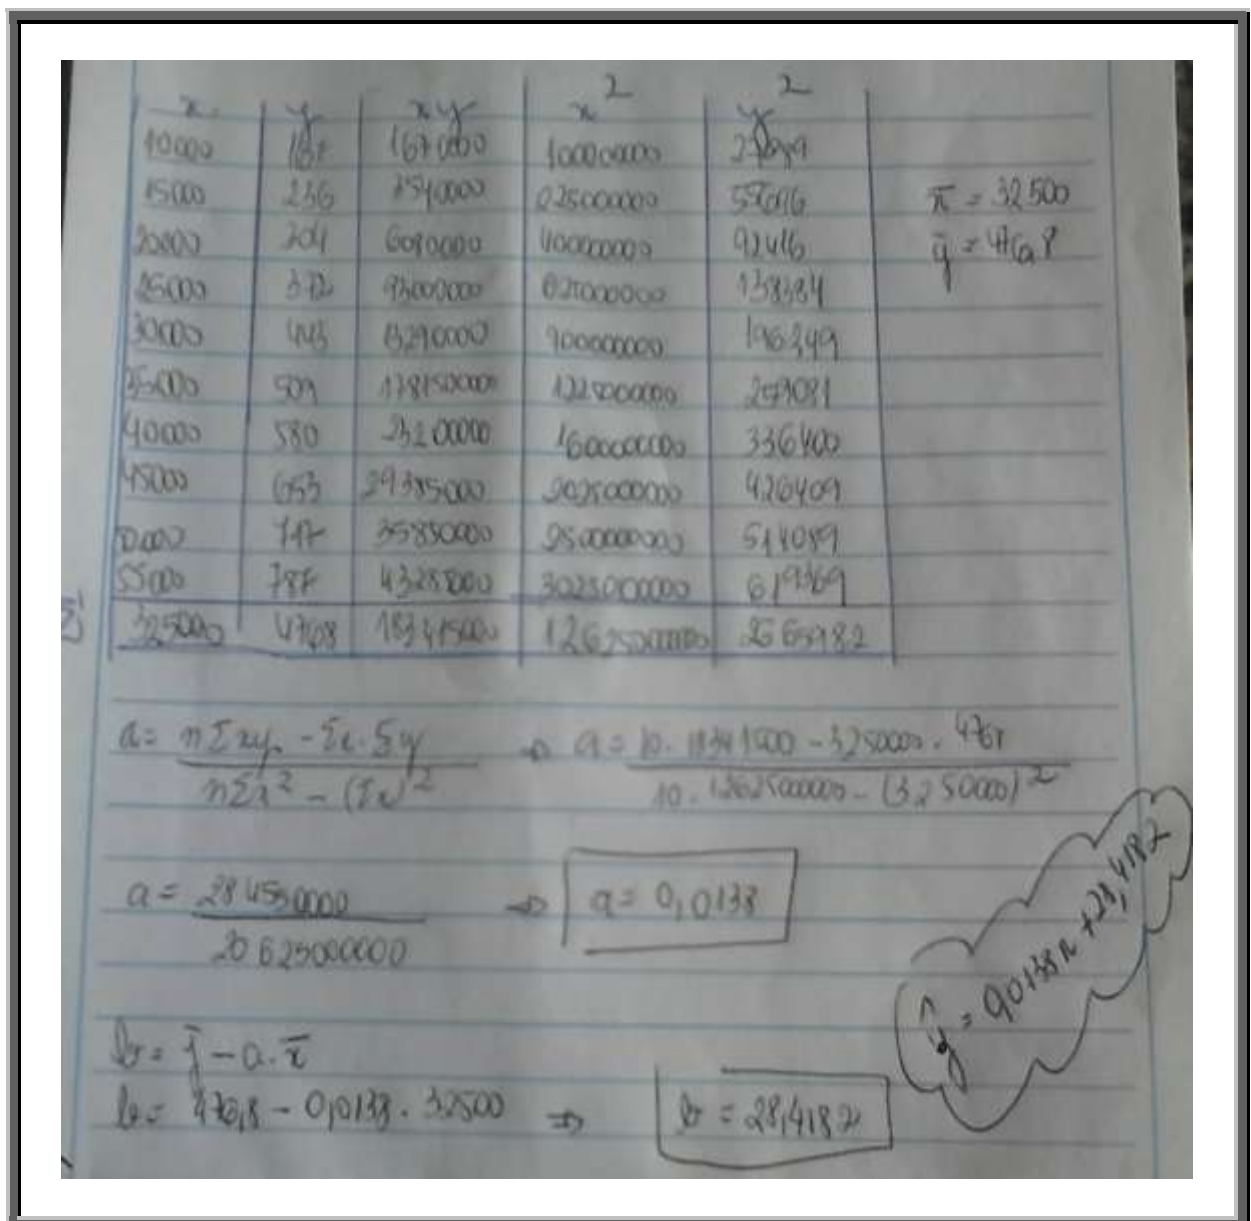 x y xy x² y²
10000 167 1670000 100000000 27889
15000 236 3540000 225000000 55696 x̄ = 32500
20000 304 6080000 400000000 92416 ȳ = 476,8
25000 372 9300000 625000000 138384
30000 443 13290000 900000000 196249
35000 509 17815000 1225000000 259081
40000 580 23200000 1600000000 336400
45000 653 29385000 2025000000 426409
50000 717 35850000 2500000000 514089
55000 787 43285000 3025000000 619369
Σ 325000 4768 183415000 12625000000 2665982
a = nΣxy - Σx . Σy / nΣx² - (Σx)² ⇒ a = 10 . - . 4768 / 10 . 12625000000 - ²
a = 284550000 / 20625000000 ⇒ a = 0,0138
b = ȳ - a . x̄
b = 476,8 - 0,0138 . 32500 ⇒ b = 28,4182
ŷ = 0,0138x + 28,4182